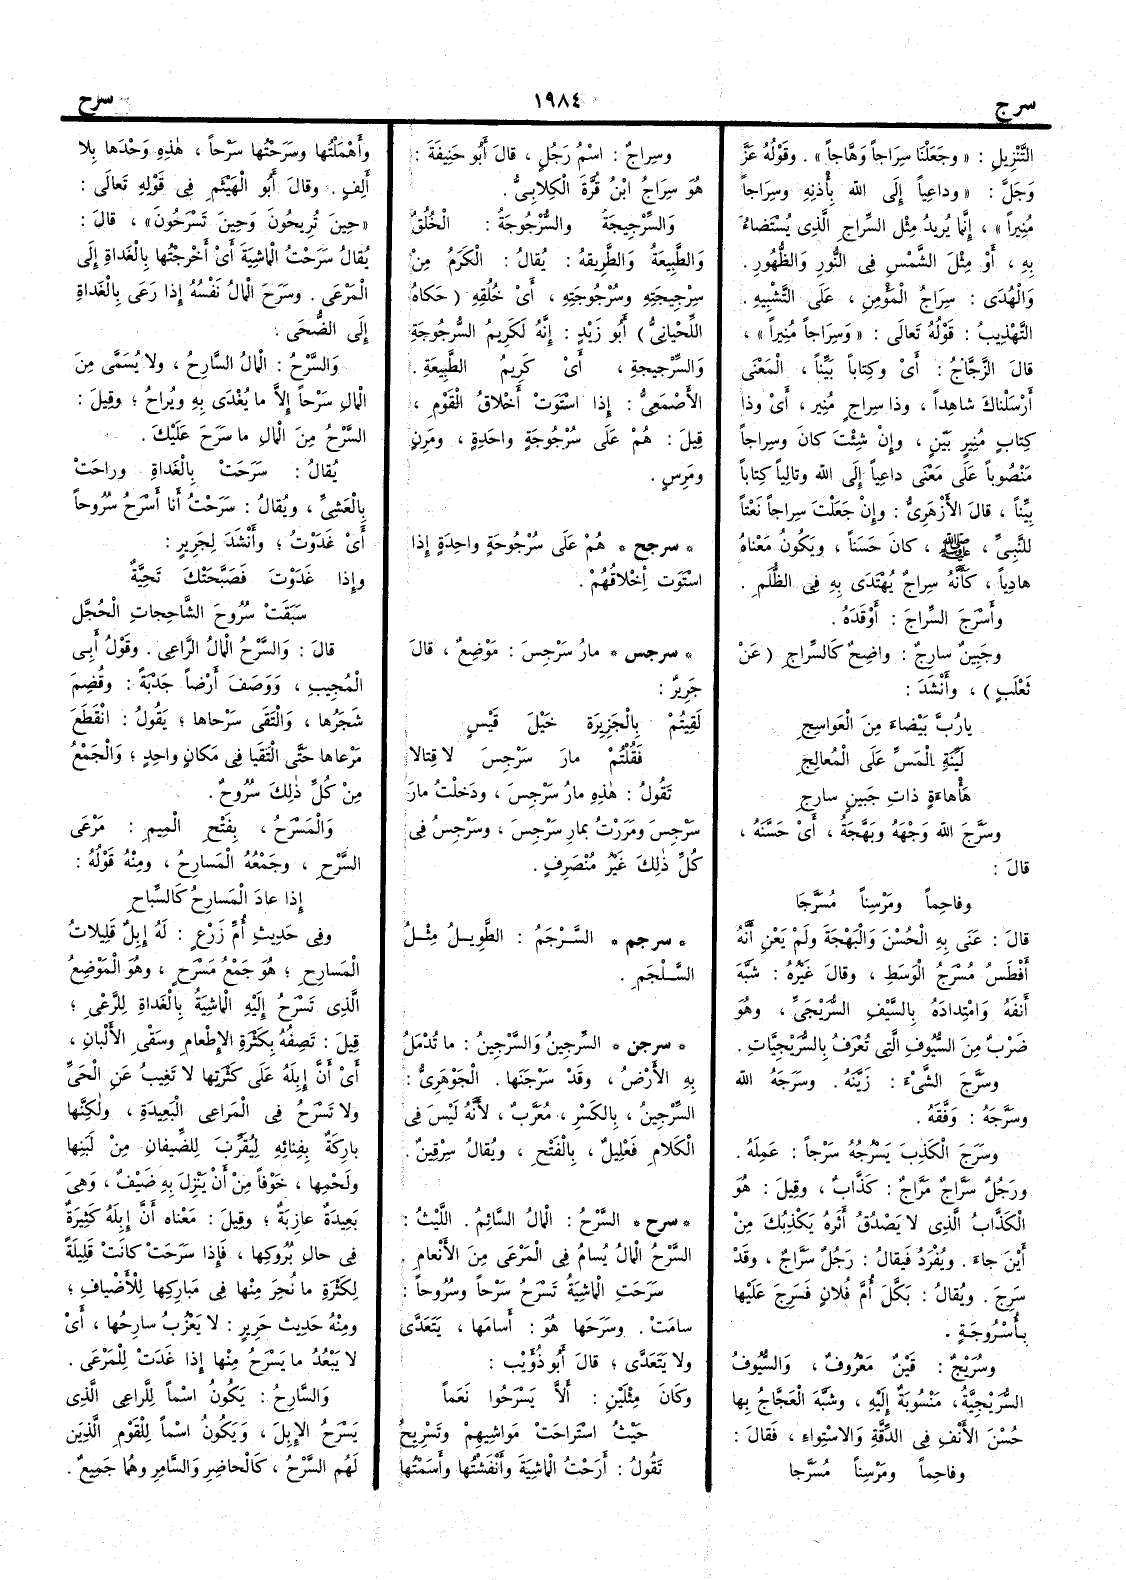 سرج
١٩٨٤
سرح
التَّنْزِيلِ : « وجَعَلْنَا سِرَاجاً وَهَّاجاً » . وقَوْلُهُ عَزَّ
وَجَلَّ : « وداعِياً إِلَى اللهِ بِإِذْنِهِ وسِرَاجاً
مُنِيراً » ، إِنَّما يُرِيدُ مِثْلَ السِّراجِ الَّذِى يُسْتَضاءُ
بِهِ ، أَوْ مِثْلَ الشَّمْسِ فِى النُّورِ وَالظُّهُورِ .
وَالْهُدَى : سِرَاجُ الْمُؤْمِنِ ، عَلَى التَّشْبِيهِ .
التَّهْذِيبُ : قَوْلُهُ تَعالَى : « وَسِراجاً مُنِيراً » ،
قالَ الزَّجَّاجُ : أَىْ وكِتاباً بَيِّناً ، الْمَعْنَى
أَرْسَلْناكَ شاهِداً ، وذا سِراجٍ مُنِيرٍ ، أَىْ وذا
كِتابٍ مُنِيرٍ بَيِّنٍ ، وإِنْ شِئْتَ كانَ وسِراجاً
مَنْصُوباً عَلَى مَعْنَى داعِياً إِلَى اللهِ وتالِياً كِتاباً
بيِّناً ، قالَ الأَزْهَرِىُّ : وإِنْ جَعَلْتَ سِراجاً نَعْتاً
لِلنَّبِىِّ ، ﷺ ، كانَ حَسَناً ، ويَكُونُ مَعْناهُ
هادِياً ، كَأَنَّهُ سِراجٌ يُهْتَدَى بِهِ فِى الظُّلَمِ .
وأَسْرَجَ السِّراجَ : أَوْقَدَهُ .
وجَبِينٌ سارِجٌ : واضِحٌ كَالسِّراجِ ( عَنْ
ثَعْلَبٍ ) ، وأَنْشَدَ :
يارُبَّ بَيْضاءَ مِنَ الْعَواسِجِ
لَيِّنَةِ الْمَسِّ عَلَى الْمُعالِجِ
هَأْهاءَةٍ ذاتِ جَبِينٍ سارِجِ
وسَرَّجَ اللهُ وَجْهَهُ وبَهَّجَهُ ، أَىْ حَسَّنَهُ ،
قالَ :
وفاحِماً ومَرْسِناً مُسَرَّجَا
قالَ : عَنَى بِهِ الْحُسْنَ وَالْبَهْجَةَ ولَمْ يَعْنِ أَنَّهُ
أَفْطَسُ مُسَرَّجُ الْوَسَطِ ، وقالَ غَيْرُهُ : شَبَّهَ
أَنفَهُ وَامْتِدادَهُ بِالسَّيْفِ السُّرَيْجِىِّ ، وهُوَ
ضَرْبٌ مِنَ السُّيُوفِ الَّتِى تُعْرَفُ بِالسُّرَيْجِيَّاتِ .
وسَرَّجَ الشَّىْءَ : زَيَّنَهُ . وسَرَجَهُ اللهُ
وسَرَّجَهُ : وَفَّقَهُ .
وسَرَجَ الْكَذِبَ يَسْرُجُهُ سَرْجاً : عَمِلَهُ .
ورَجُلٌ سَرَّاجٌ مَرَّاجٌ : كَذَّابٌ ، وقِيلَ : هُوَ
الْكَذَّابُ الَّذِى لا يَصْدُقُ أَثَرَهُ يَكْذِبُكَ مِنْ
أَيْنَ جاءَ . ويُفْرَدُ فَيقالُ : رَجُلٌ سَرَّاجٌ ، وقَدْ
سَرِجَ . ويُقالُ : بَكَّلَ أُمَّ فُلانٍ فَسَرِجَ عَلَيْها
بِأُسْرُوجَةٍ .
وسُرَيْجٌ : قَيْنٌ مَعْرُوفٌ ، وَالسُّيُوفُ
السُّرَيْجِيَّةُ ، مَنْسُوبَةٌ إِلَيْهِ ، وشَبَّهَ الْعَجَّاجُ بِها
حُسْنَ الأَنْفِ فِى الدِّقَّةِ وَالاِسْتِواءِ ، فَقالَ :
وفاحِماً ومَرْسِناً مُسَرَّجا
وسِراجٌ : اسْمُ رَجُلٍ ، قالَ أَبُو حَنِيفَةَ :
هُوَ سِراجُ ابْنُ قُرَّةَ الْكِلابِىُّ .
وَالسِّرْجِيجَةُ والسُّرْجُوجَةُ : الْخُلُقُ
وَالطَّبِيعَةُ وَالطَّرِيقَةُ ؛ يُقالُ : الْكَرَمُ مِنْ
سِرْجِيجَتِهِ وسُرْجُوجَتِهِ ، أَىْ خُلُقِهِ ( حَكاهُ
اللِّحْيانِىُّ ) أَبُو زَيْدٍ : إِنَّهُ لَكَرِيمُ السُّرْجُوجَةِ
وَالسِّرْجِيجَةِ ، أَىْ كَرِيمُ الطَّبِيعَةِ .
الأَصْمَعِىُّ : إِذا اسْتَوَتْ أَخْلاقُ الْقَوْمِ ،
قِيلَ : هُمْ عَلَى سُرْجُوجَةٍ واحِدَةٍ ، ومَرِنٍ
ومَرِسٍ .
* سرجح * هُمْ عَلَى سُرْجُوحَةٍ واحِدَةٍ إِذا
اسْتَوَت أخْلاقُهُمْ .
* سرجس * مارُ سَرْجِسَ : مَوْضِعٌ ، قالَ
جَرِيرٌ :
لَقِيتُمْ بِالْجَزِيرَةِ خَيْلَ قَيْسٍ
فَقُلْتُمْ مارَ سَرْجِسَ لا قِتالا
تَقُولُ : هٰذِهِ مارُ سَرْجِسَ ، ودَخَلْتُ مارَ
سَرْجِسَ ومَرَرْتُ بِمارِ سَرْجِسَ ، وسَرْجِسُ فِى
كُلِّ ذٰلِكَ غَيْرُ مُنْصَرِفٍ .
* سرجم * السَّرْجَمُ : الطَّوِيلُ مِثْلُ
السَّلْجَمِ .
* سرجن * السِّرْجِينُ وَالسَّرْجِينُ : ما تُدْمَلُ
بِهِ الأَرْضُ ، وقَدْ سَرْجَنَها . الْجَوْهَرِىُّ :
السِّرْجِينُ ، بِالْكَسْرِ ، مُعَرَّبٌ ، لأَنَّهُ لَيْسَ فِى
الْكَلامِ فَعْلِيلٌ ، بِالْفَتْحِ ، ويُقالُ سِرْقِينٌ .
* سرح * السَّرْحُ : الْمالُ السَّائِمُ . اللَّيْثُ :
السَّرْحُ الْمالُ يُسامُ فِى الْمَرْعَى مِنَ الأَنْعامِ .
سَرَحَتِ الْماشِيَةُ تَسْرَحُ سَرْحاً وسُرُوحاً :
سامَتْ . وسَرَحَها هُوَ : أَسامَها ، يَتَعَدَّى
ولا يَتَعَدَّى ؛ قالَ أَبُو ذُؤَيْبٍ :
وكَانَ مِثْلَيْنِ : أَلاَّ يَسْرَحُوا نَعَماً
حَيْثُ اسْتَراحَتْ مَواشِيهِمْ وتَسْرِيحُ
تَقُولُ : أَرَحْتُ الْماشِيَةَ وأَنْفَشْتُها وأَسَمْتُها
وأَهْمَلْتُها وسَرَحْتُها سَرْحاً ، هٰذِهِ وَحْدَها بِلا
أَلِفٍ . وقالَ أَبُو الْهَيْثَمِ فِى قَوْلِهِ تَعالَى :
« حِينَ تُرِيحُونَ وَحِينَ تَسْرَحُونَ » ، قالَ :
يُقالُ سَرَحْتُ الْماشِيَةَ أَىْ أَخْرَجْتُها بِالْغَداةِ إِلَى
الْمَرْعَى . وسَرَحَ الْمالُ نَفْسُهُ إِذا رَعَى بِالْغَداةِ
إِلَى الضُّحَى .
وَالسَّرْحُ : الْمالُ السَّارِحُ ، ولا يُسَمَّى مِنَ
الْمالِ سَرْحاً إِلاَّ ما يُغْدَى بِهِ ويُراحُ ؛ وقِيلَ :
السَّرْحُ مِنَ الْمالِ ما سَرَحَ عَلَيْكَ .
يُقالُ : سَرَحَتْ بِالْغَداةِ وراحَتْ
بِالْعَشِىِّ ، ويُقالُ : سَرَحْتُ أَنا أَسْرَحُ سُرُوحاً
أَىْ غَدَوْتُ ؛ وأَنْشَدَ لِجَرِيرٍ :
وإِذا غَدَوْتَ فَصَبَّحَتْكَ تَحِيَّةٌ
سَبَقَتْ سُرُوحَ الشَّاحِجاتِ الْحُجَّلِ
قالَ : وَالسَّرْحُ الْمالُ الرَّاعِى . وقَوْلُ أَبِى
الْمُجِيبِ ، وَوَصَفَ أَرْضاً جَدْبَةً : وقُضِمَ
شَجَرُها ، وَالْتَقَى سَرْحاها ؛ يَقُولُ : انْقَطَعَ
مَرْعاها حَتَّى الْتَقَيا فِى مَكانٍ واحِدٍ ؛ وَالْجَمْعُ
مِنْ كُلِّ ذٰلِكَ سُرُوحٌ .
وَالْمَسْرَحُ ، بِفَتْحِ الْمِيمِ : مَرْعَى
السَّرْحِ ، وجَمْعُهُ الْمَسارِحُ ، ومِنْهُ قَوْلُهُ :
إِذا عادَ الْمَسارِحُ كَالسِّباحِ
وفِى حَدِيثِ أُمِّ زَرْعٍ : لَهُ إِبِلٌ قَلِيلاتُ
الْمَسارِحِ ؛ هُوَ جَمْعُ مَسْرَحٍ ، وهُوَ الْمَوْضِعُ
الَّذِى تَسْرَحُ إِلَيْهِ الْماشِيَةُ بِالْغَداةِ لِلرَّعْىِ ؛
قِيلَ : تَصِفُهُ بِكَثْرَةِ الإِطْعامِ وسَقْىِ الأَلْبانِ ،
أَىْ أَنَّ إِبِلَهُ عَلَى كَثْرَتِها لا تَغِيبُ عَنِ الْحَىِّ
ولا تَسْرَحُ فِى الْمَراعِى الْبَعِيدَةِ ، ولٰكِنَّها
بارِكَةٌ بِفِنائِهِ لِيُقَرِّبَ لِلضِّيفانِ مِنْ لَبَنِها
ولَحْمِها ، خَوْفاً مِنْ أَنْ يَنْزِلَ بِهِ ضَيْفٌ ، وَهِىَ
بَعِيدَةٌ عازِبَةٌ ؛ وقِيلَ : مَعْناه أَنَّ إِبِلَهُ كَثِيرَةٌ
فِى حالِ بُرُوكِها ، فَإِذا سَرَحَتْ كانَتْ قَلِيلَةً
لِكَثْرَةِ ما نُحِرَ مِنْها فِى مَبارِكِها لِلأَضْيافِ ؛
ومِنْهُ حَدِيث جَرِيرٍ : لا يَعْزُبُ سارِحُها ، أَىْ
لا يَبْعُدُ ما يَسْرَحُ مِنْها إِذا غَدَتْ لِلْمَرْعَى .
وَالسَّارِحُ : يَكُونُ اسْماً لِلرَّاعِى الَّذِى
يَسْرَحُ الإِبِلَ ، وَيَكُونُ اسْماً لِلْقَوْمِ الَّذِينَ
لَهُم السَّرْحُ ، كَالْحاضِرِ وَالسَّامِرِ وهُما جَمِيعٌ .